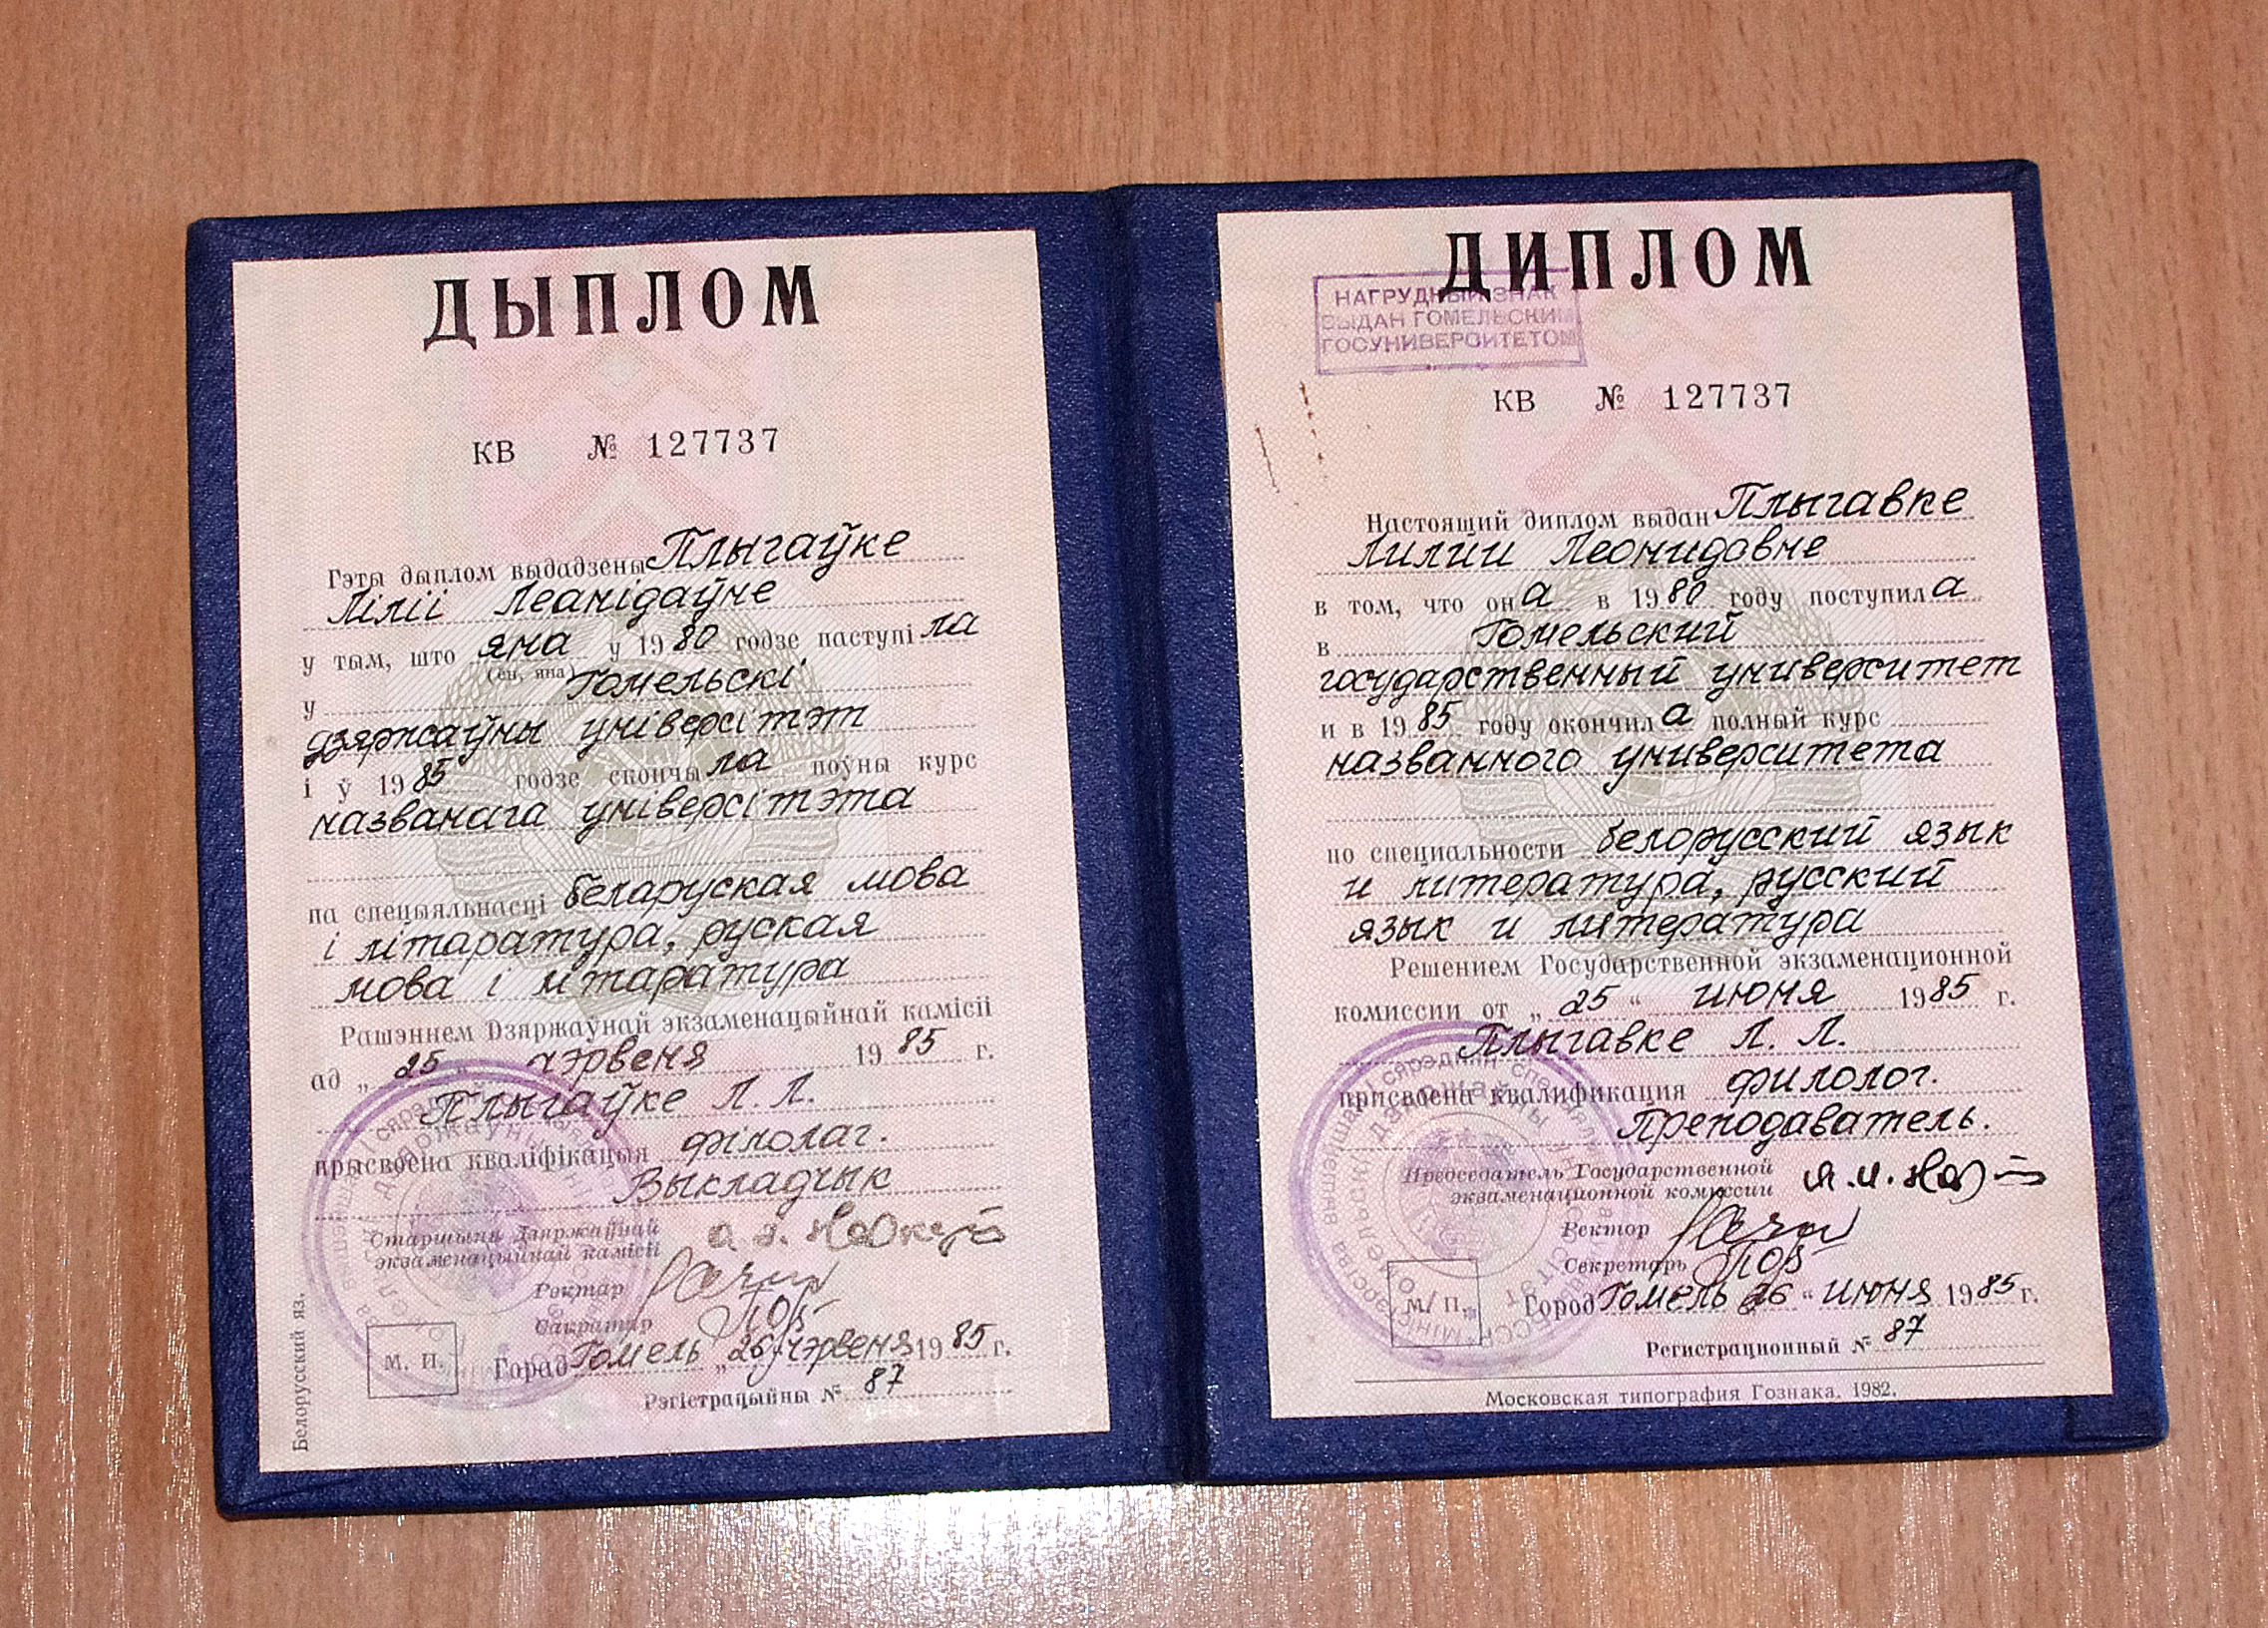 ДЫПЛОМ
КВ № 127737
Гэты дыплом выдадзены Плыгаўке
Ліліі Леанідаўне
у тым, што яна у 1980 годзе паступіла
(ён, яна)
у Гомельскі
дзяржаўны універсітэт
і ў 1985 годзе скончыла поўны курс
названага універсітэта
па спецыяльнасці беларуская мова
і літаратура, руская
мова і літаратура
Рашэннем Дзяржаўнай экзаменацыйнай камісіі
ад „25" чэрвеня 1985 г.
Плыгаўке Л. Л.
прысвоена кваліфікацыя філолаг.
Выкладчык
Старшыня Дзяржаўнай
экзаменацыйнай камісіі
Рэктар
Сакратар
М. П. Горад Гомель „26" чэрвеня 1985 г.
Рэгістрацыйны № 87
Белорусский яз.
ДИПЛОМ
НАГРУДНЫЙ ЗНАК
ВЫДАН ГОМЕЛЬСКИМ
ГОСУНИВЕРСИТЕТОМ
КВ № 127737
Настоящий диплом выдан Плыгавке
Лилии Леонидовне
в том, что она в 1980 году поступила
в Гомельский
государственный университет
и в 1985 году окончила полный курс
названного университета
по специальности белорусский язык
и литература, русский
язык и литература
Решением Государственной экзаменационной
комиссии от „25" июня 1985 г.
Плыгавке Л. Л.
присвоена квалификация филолог.
Преподаватель.
Председатель Государственной
экзаменационной комиссии
Ректор
Секретарь
М. П. Город Гомель 26 " июня 1985 г.
Регистрационный № 87
Московская типография Гознака. 1982.